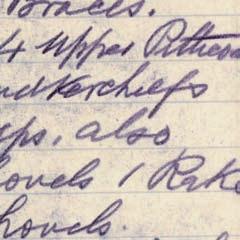 Braces.
4 Upper
ndkerchiefs
ps, also
hovels 1 Rake
hovels.